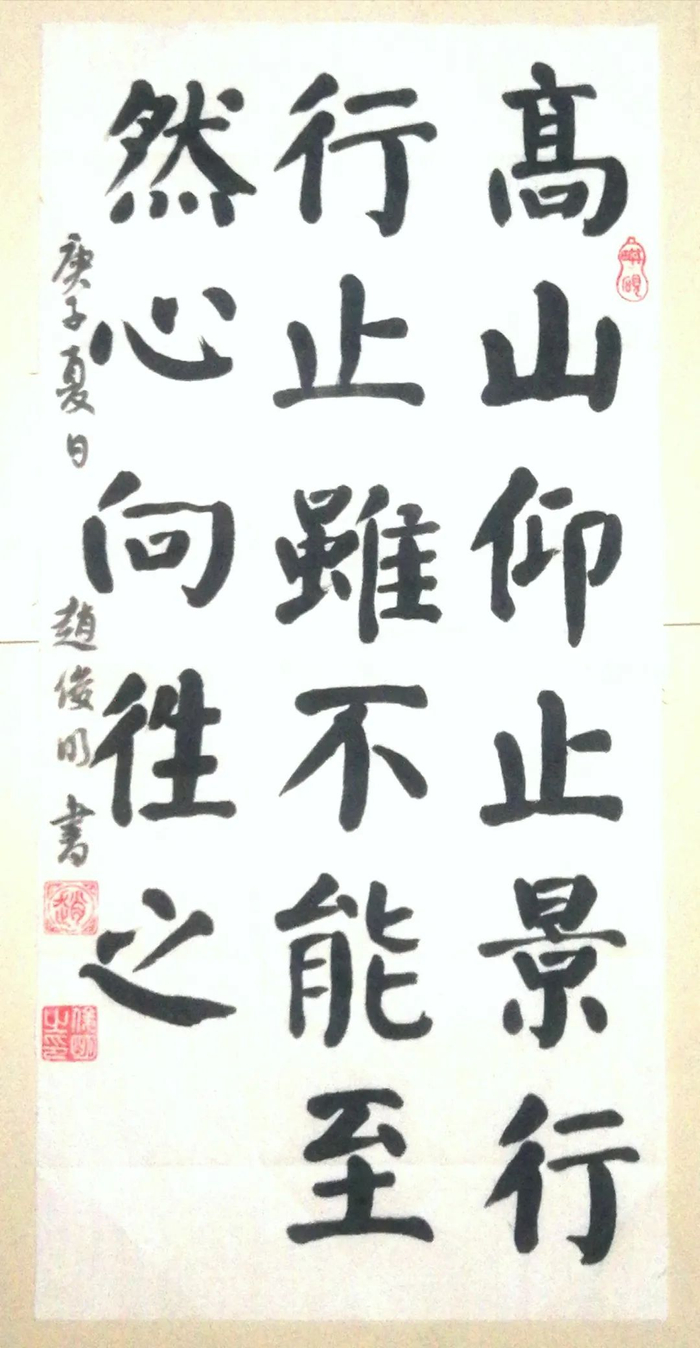 高山仰止景行
行止雖不能至
然心向往之
庚子夏日 趙俊明書